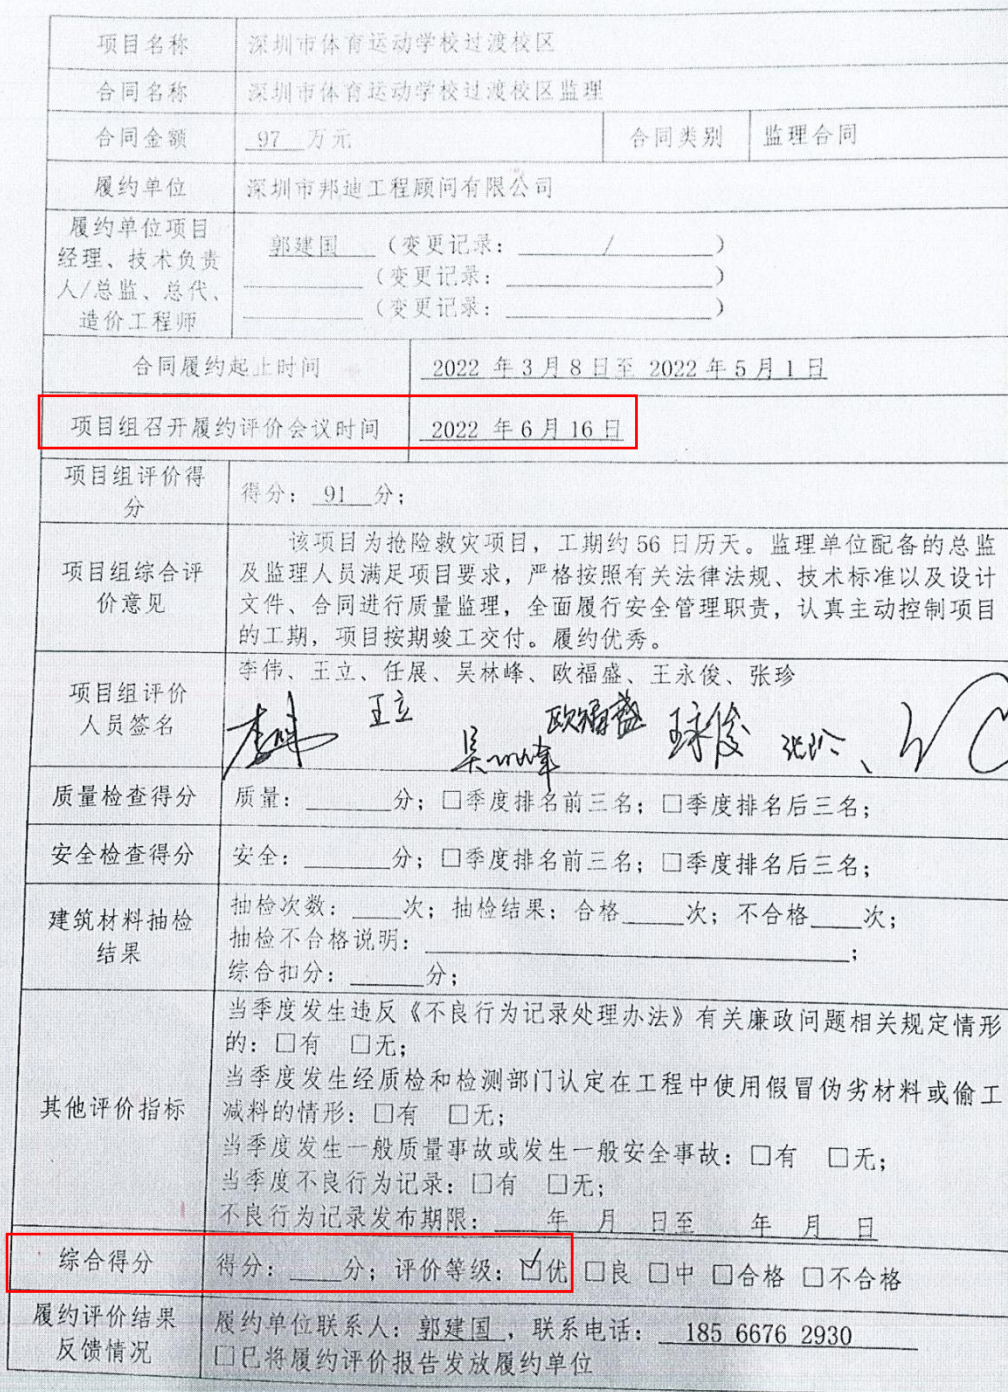 项目名称 深圳市体育运动学校过渡校区
合同名称 深圳市体育运动学校过渡校区监理
合同金额 97 万元 合同类别 监理合同
履约单位 深圳市邦迪工程顾问有限公司
履约单位项目
经理、技术负责
人/总监、总代、
造价工程师
郭建国 (变更记录: / )
(变更记录: )
(变更记录: )
合同履约起止时间 2022 年 3 月 8 日至 2022 年 5 月 1 日
项目组召开履约评价会议时间 2022 年 6 月 16 日
项目组评价得
分
得分: 91 分;
项目组综合评
价意见
该项目为抢险救灾项目，工期约 56 日历天。监理单位配备的总监
及监理人员满足项目要求，严格按照有关法律法规、技术标准以及设计
文件、合同进行质量监理，全面履行安全管理职责，认真主动控制项目
的工期，项目按期竣工交付。履约优秀。
项目组评价
人员签名
李伟、王立、任展、吴林峰、欧福盛、王永俊、张珍
李伟 王立 吴林峰 欧福盛 王永俊 张珍、
质量检查得分 质量: ______分; □季度排名前三名; □季度排名后三名;
安全检查得分 安全: ______分; □季度排名前三名; □季度排名后三名;
建筑材料抽检
结果
抽检次数: ____次; 抽检结果: 合格____次; 不合格____次;
抽检不合格说明: ______________________________;
综合扣分: ______分;
其他评价指标
当季度发生违反《不良行为记录处理办法》有关廉政问题相关规定情形
的: □有 □无;
当季度发生经质检和检测部门认定在工程中使用假冒伪劣材料或偷工
减料的情形: □有 □无;
当季度发生一般质量事故或发生一般安全事故: □有 □无;
当季度不良行为记录: □有 □无;
不良行为记录发布期限: 年 月 日至 年 月 日
综合得分 得分: ____分; 评价等级: ☑优 □良 □中 □合格 □不合格
履约评价结果
反馈情况
履约单位联系人: 郭建国 , 联系电话: 185 6676 2930
□已将履约评价报告发放履约单位